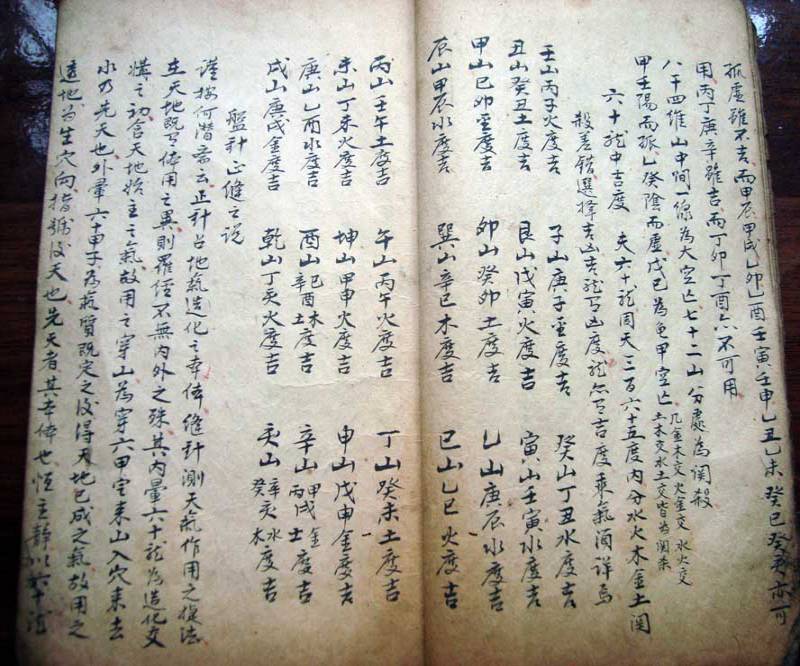 孤虛雖不吉而甲辰甲戌乙卯乙酉壬寅壬申乙丑乙未癸巳癸亥亦可
用丙丁庚辛雖吉而丁卯丁酉亦不可用
八干四維山中間一線為大空亡七十二山分處為関殺
凡金木交火金交水火交
土木交水土交皆為関杀
甲壬陽而孤乙癸陰而虛戊己為龟甲空亡
六十龙中吉度 夫六十龙周天三百六十五度内分水火木金土関
殺差錯選擇吉凶吉龙有凶度龙亦有吉度乘氣須詳焉
壬山丙子火度吉 子山庚子金度吉 癸山丁丑水度吉
丑山癸丑土度吉 艮山戊寅火度吉 寅山壬寅水度吉
甲山己卯金度吉 卯山癸卯土度吉 乙山庚辰水度吉
辰山甲辰水度吉 巽山辛巳木度吉 巳山乙巳火度吉
丙山壬午土度吉 午山丙午火度吉 丁山癸未土度吉
未山丁未火度吉 坤山甲申火度吉 申山戊申金度吉
庚山乙酉水度吉 酉山己酉木辛酉土度吉 辛山甲戌金丙戌土度吉
戌山庚戌金度吉 乾山丁亥火度吉 亥山辛亥水癸亥木度吉
盤針正縫之说
謹按何潛斋云正針占地氣造化之本体縫針測天氣作用之捉法
在天地既有体用之異則羅經不無内外之殊其内暈六十龙為造化交
媾之初含天地始主之氣故用之穿山為穿六甲定来山入穴来去
水乃先天也外暈六十甲子為氣質既定之後得天地已成之氣故用之
透地為生穴向指納後天也先天者其本体也恒主静以六十龙